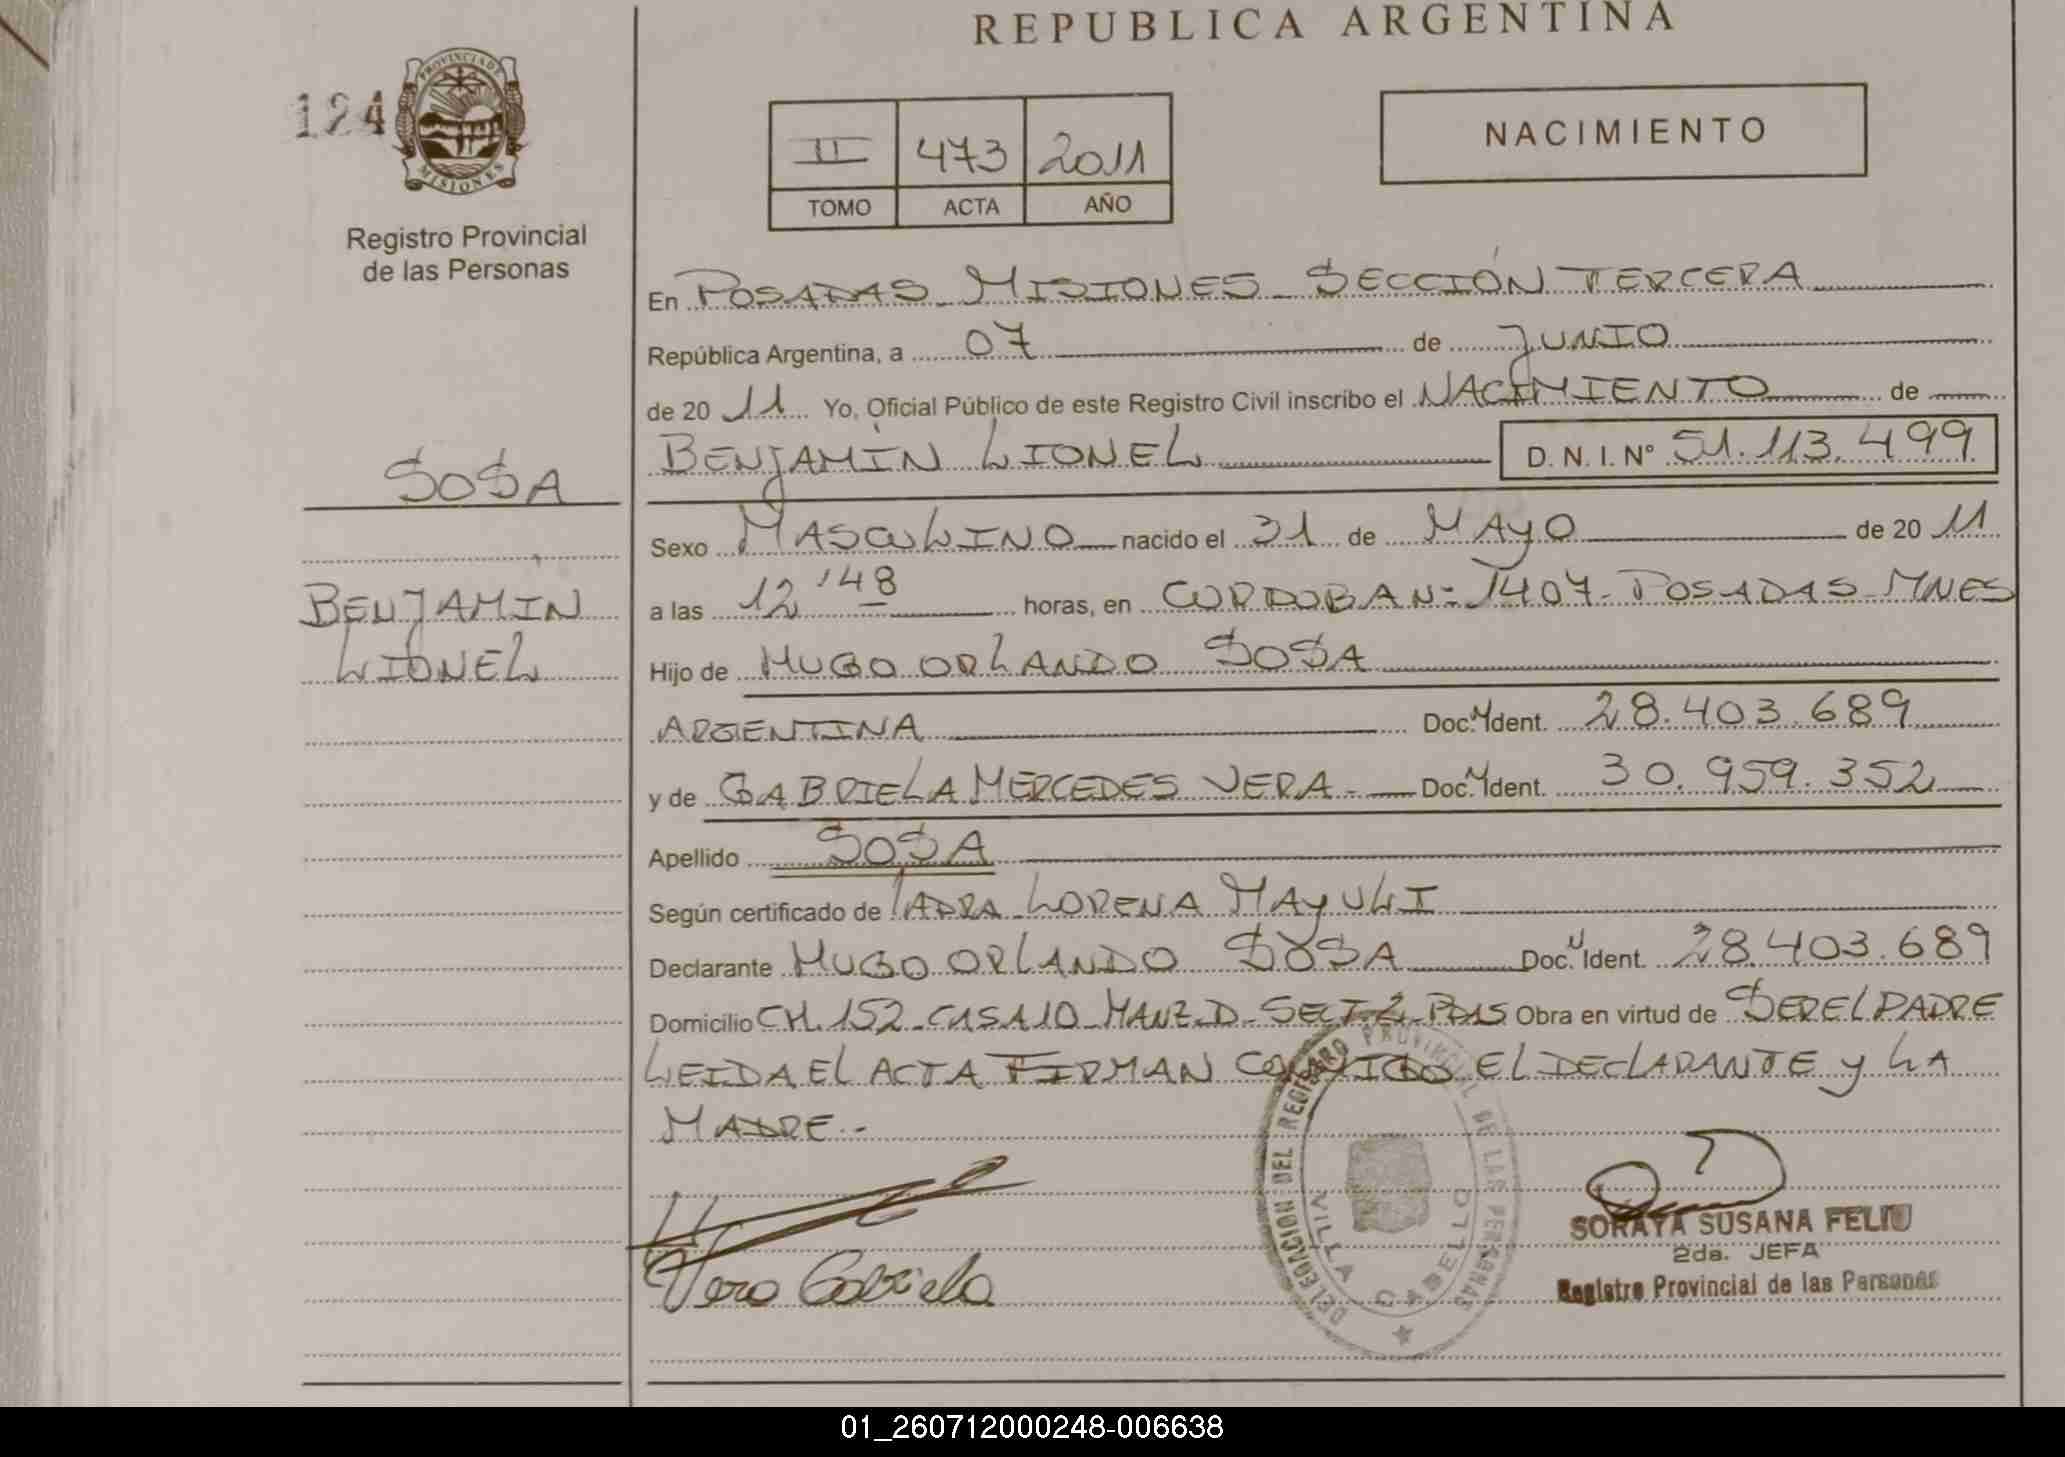 REPUBLICA ARGENTINA
124
PROVINCIA DE MISIONES
Registro Provincial
de las Personas
II 473 2011
TOMO ACTA AÑO
NACIMIENTO
En POSADAS MISIONES SECCIÓN TERCERA
República Argentina, a 07 de JUNIO
de 20 11 Yo, Oficial Público de este Registro Civil inscribo el NACIMIENTO de
BENJAMÍN LIONEL D. N. I. Nº 51.113.499
SOSA
BENJAMIN
LIONEL
Sexo MASCULINO nacido el 31 de MAYO de 20 11
a las 12'48 horas, en CORDOBA Nº 1407 - POSADAS - MNES
Hijo de HUGO ORLANDO SOSA
ARGENTINA Doc. Ident. 28.403.689
y de GABRIELA MERCEDES VERA - Doc. Ident. 30.959.352
Apellido SOSA
Según certificado de LORENA MAYULI
Declarante HUGO ORLANDO SOSA Doc. Ident. 28.403.689
Domicilio CH. 152 - CASA 10 - MANZ. D - SECT. 2 - PDAS Obra en virtud de SER EL PADRE
LEIDA EL ACTA FIRMAN CONMIGO EL DECLARANTE Y LA
MADRE.-
Vera Gabriela
DELEGACION DEL REGISTRO PROVINCIAL DE LAS PERSONAS
VILLA CABELLO
SORAYA SUSANA FELIU
2da. JEFA
Registro Provincial de las Personas
01_260712000248-006638